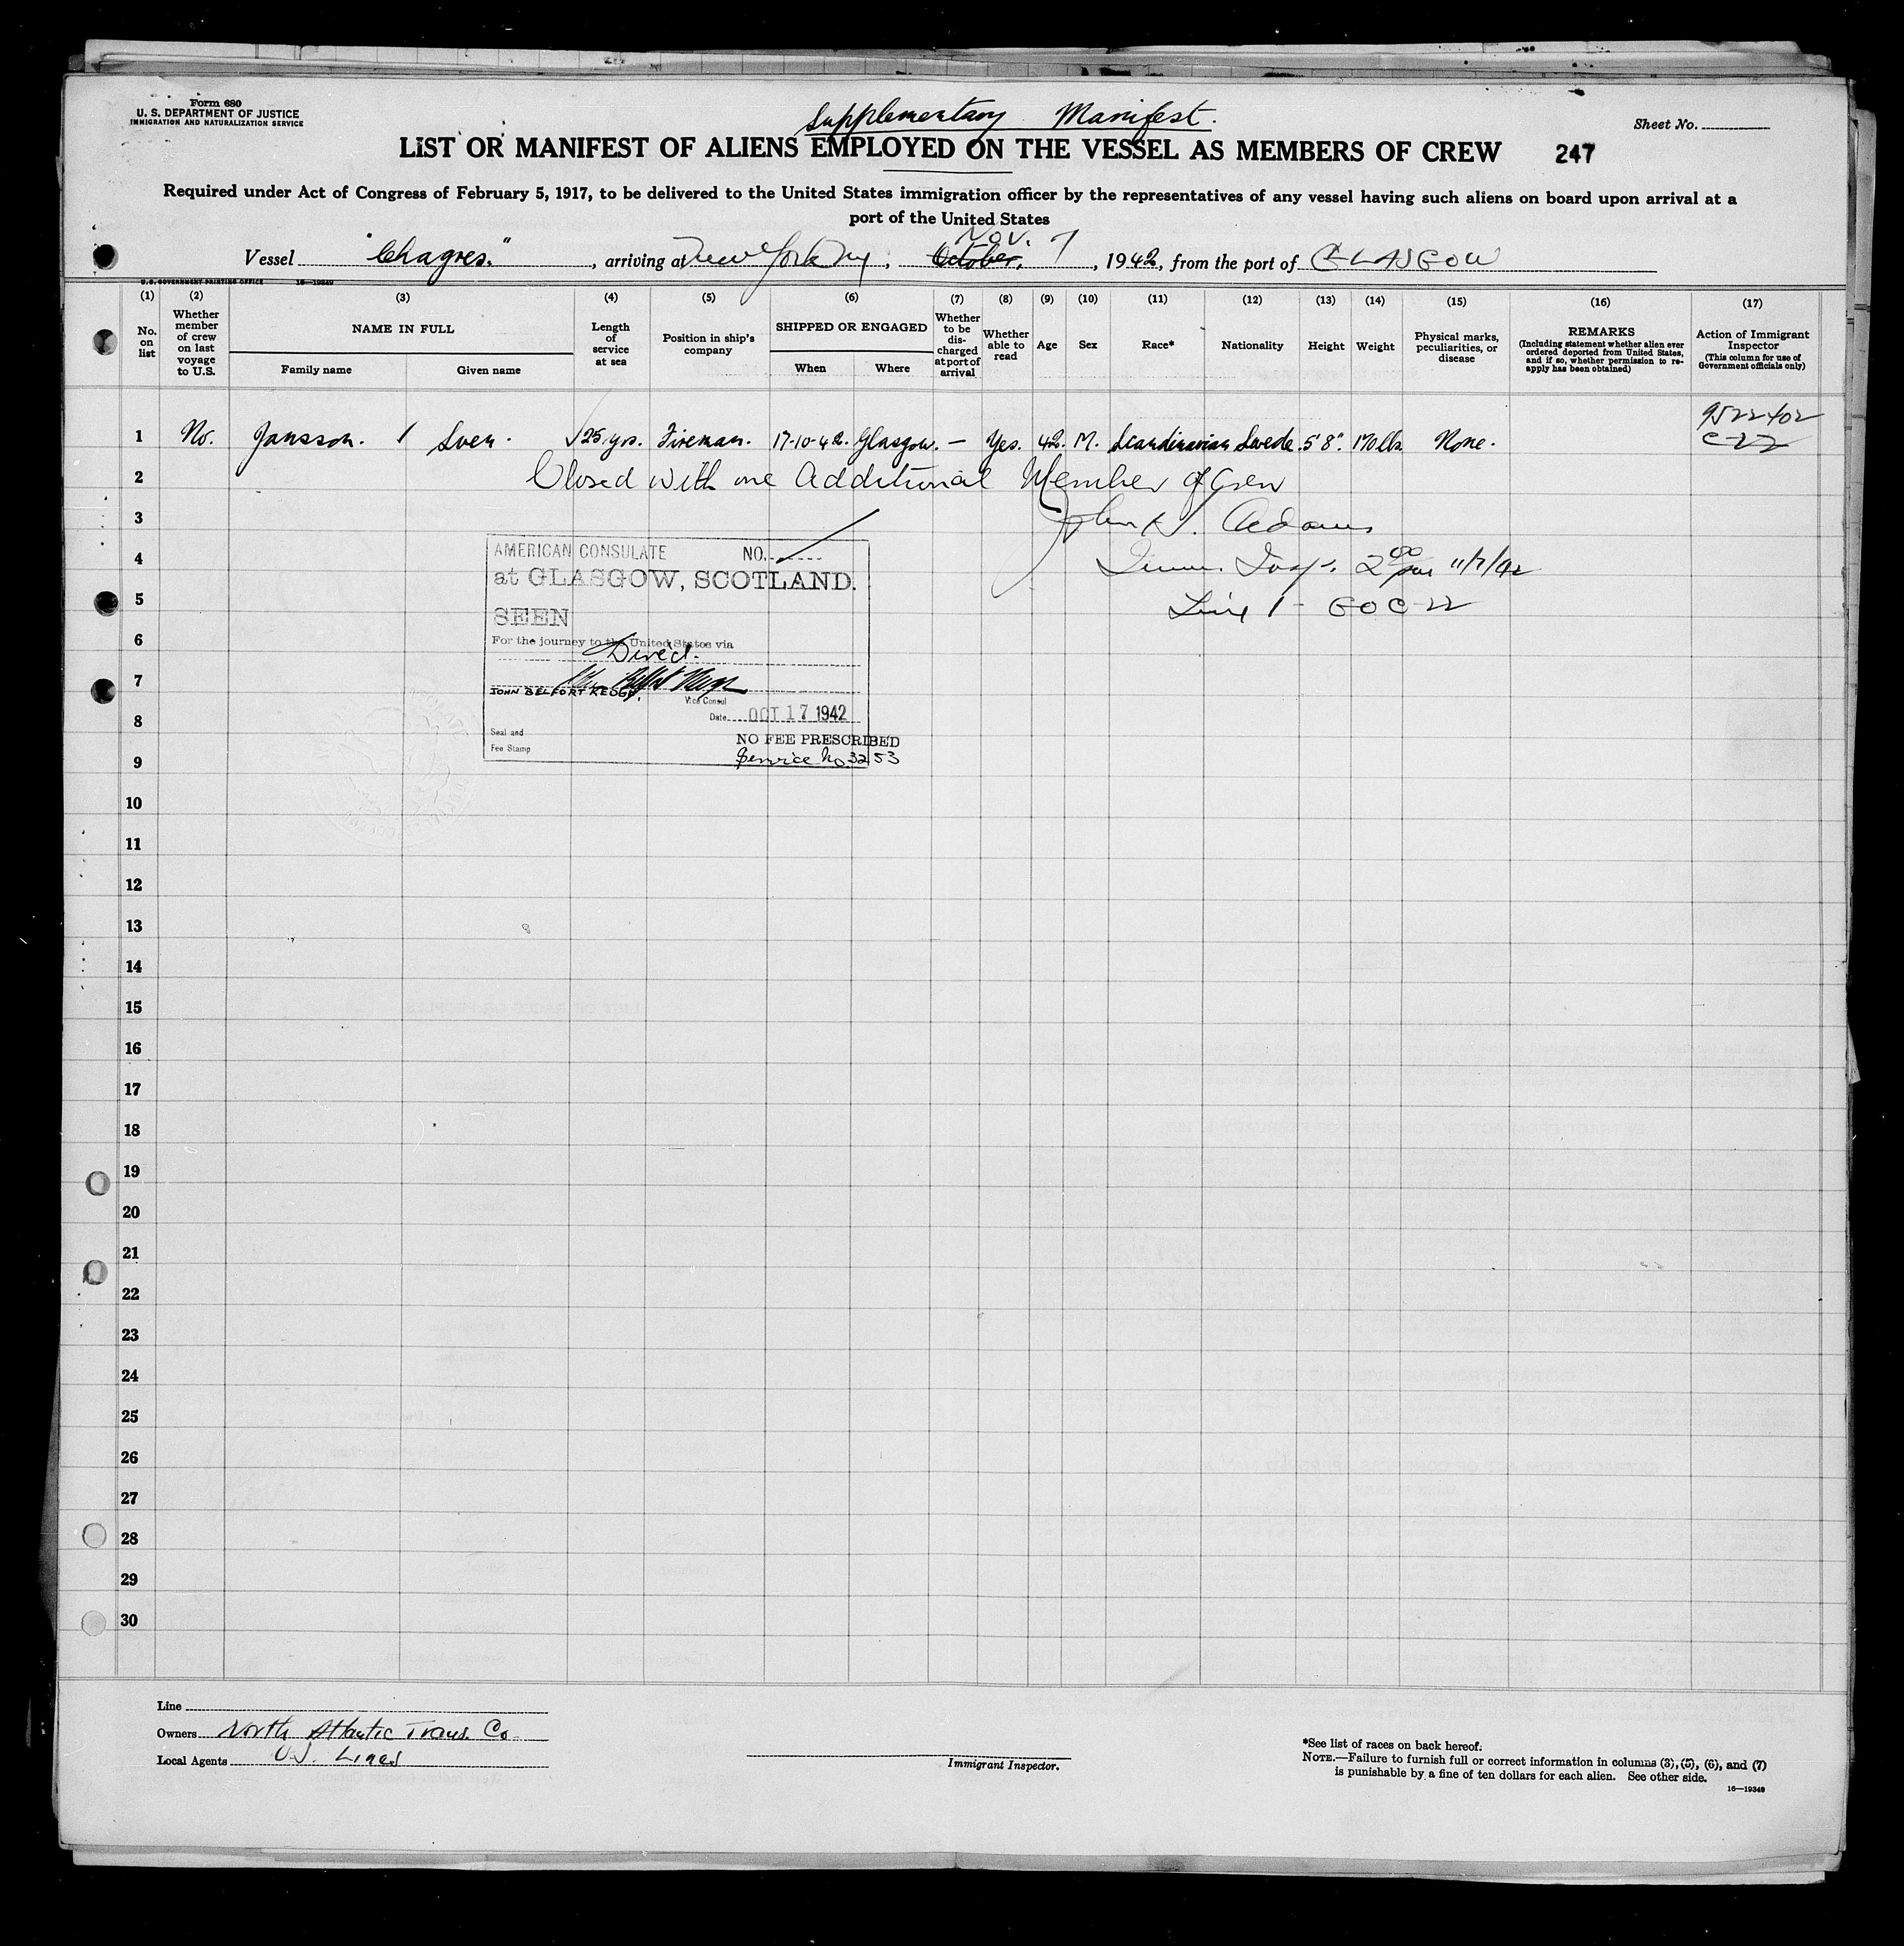 Form 680
U. S. DEPARTMENT OF JUSTICE
IMMIGRATION AND NATURALIZATION SERVICE
Supplementary Manifest.
Sheet No.
LIST OR MANIFEST OF ALIENS EMPLOYED ON THE VESSEL AS MEMBERS OF CREW 247
Required under Act of Congress of February 5, 1917, to be delivered to the United States immigration officer by the representatives of any vessel having such aliens on board upon arrival at a
port of the United States
Nov. 7
Vessel "Chagres." , arriving at New York NY , October, , 1942, from the port of GLASGOW
U.S. GOVERNMENT PRINTING OFFICE 16—19349
(1) (2) (3) (4) (5) (6) (7) (8) (9) (10) (11) (12) (13) (14) (15) (16) (17)
No. on list
Whether member of crew on last voyage to U.S.
NAME IN FULL
Family name
Given name
Length of service at sea
Position in ship's company
SHIPPED OR ENGAGED
When
Where
Whether to be discharged at port of arrival
Whether able to read
Age
Sex
Race*
Nationality
Height
Weight
Physical marks, peculiarities, or disease
REMARKS
(Including statement whether alien ever ordered deported from United States, and if so, whether permission to re-apply has been obtained)
Action of Immigrant Inspector
(This column for use of Government officials only)
9522402
C-22
1 No. Jansson. / Sven. √25 yrs. Fireman. 17-10-42. Glasgow. — Yes. 42. M. Scandinavian Swede. 5'8". 170 lbs. None.
2 Closed with one Additional Member of Crew
3 Adams
4 2 00 pm 11/7/42
5 Line 1 - C-22
AMERICAN CONSULATE NO.
at GLASGOW, SCOTLAND.
SEEN
For the journey to the United States via
Direct.
JOHN BELFORT KEOGH.
Vice Consul
Date OCT 17 1942
Seal and
Fee Stamp
NO FEE PRESCRIBED
Service No. 3253
6
7
8
9
10
11
12
13
14
15
16
17
18
19
20
21
22
23
24
25
26
27
28
29
30
Line
Owners North Atlantic Trans. Co
Local Agents U.S. Lines
Immigrant Inspector.
*See list of races on back hereof.
NOTE.—Failure to furnish full or correct information in columns (3), (5), (6), and (7)
is punishable by a fine of ten dollars for each alien. See other side.
16—19349